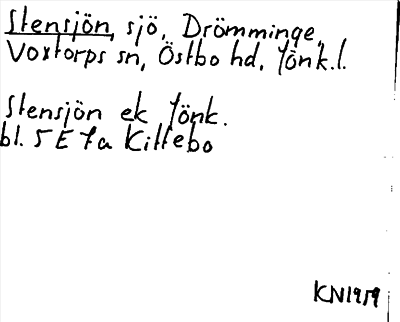 Stensjön, sjö, Drömminge,
Voxtorps sn, Östbo hd, Jönk.l.
Stensjön ek Jönk.
bl. 5 E 7a Killebo
KN1959